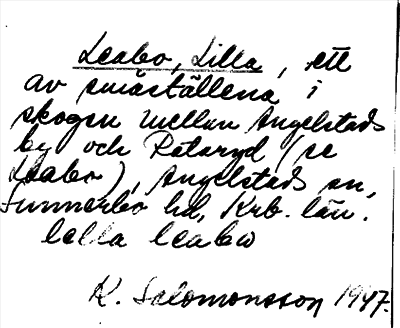 Leabo, Lilla, ett
av småställena i
skogen mellan Angelstads
by och Rataryd (se
Leabo), Angelstads sn,
Sunnerbo hd, Krb. län.
lella leabω
K. Salomonsson 1947.